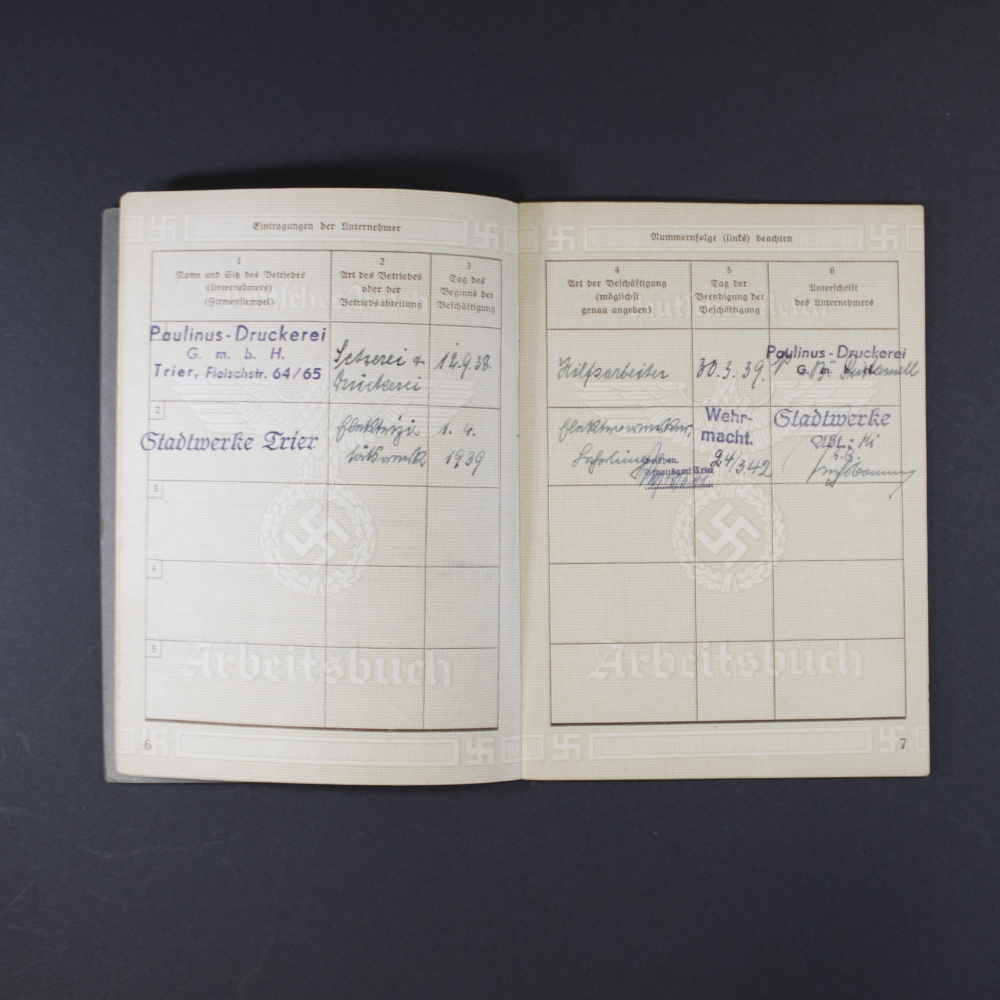 Eintragungen der Unternehmer
1
Name und Sitz des Betriebes
(Unternehmers)
(Firmenstempel)
2
Art des Betriebes
oder der
Betriebsabteilung
3
Tag des
Beginns der
Beschäftigung
Paulinus-Druckerei
G. m. b. H.
Trier, Fleischstr. 64/65
Setzerei &
Druckerei
12.9.38.
2
Stadtwerke Trier
Elektrizi
tätswerk
1. 4.
1939
3
4
5
Arbeitsbuch
6
Nummernfolge (links) beachten
4
Art der Beschäftigung
(möglichst
genau angeben)
5
Tag der
Beendigung der
Beschäftigung
6
Unterschrift
des Unternehmers
Hilfsarbeiter
30.3.39.
Paulinus-Druckerei
G. m. b. H.
Wehr-
macht.
24/3.42
Stadtwerke
Abt.
Arbeitsbuch
7